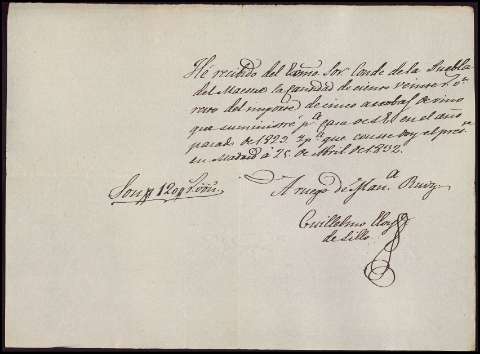 Hé recibido del Exmo Sor Conde de la Puebla
del Maestre la cantidad de ciento veinte rs. vn.
resto del importe de cinco arrobas de vino
que suministré pa. casa de S.E. en el año
pasado de 1823. y pa. que conste doy el preste.
en Madrid á 25 de Abril de 1832.
Son 120 rs. von.
A ruego de Mana. Ruiz
Guillelmo Eloy
de Lillo